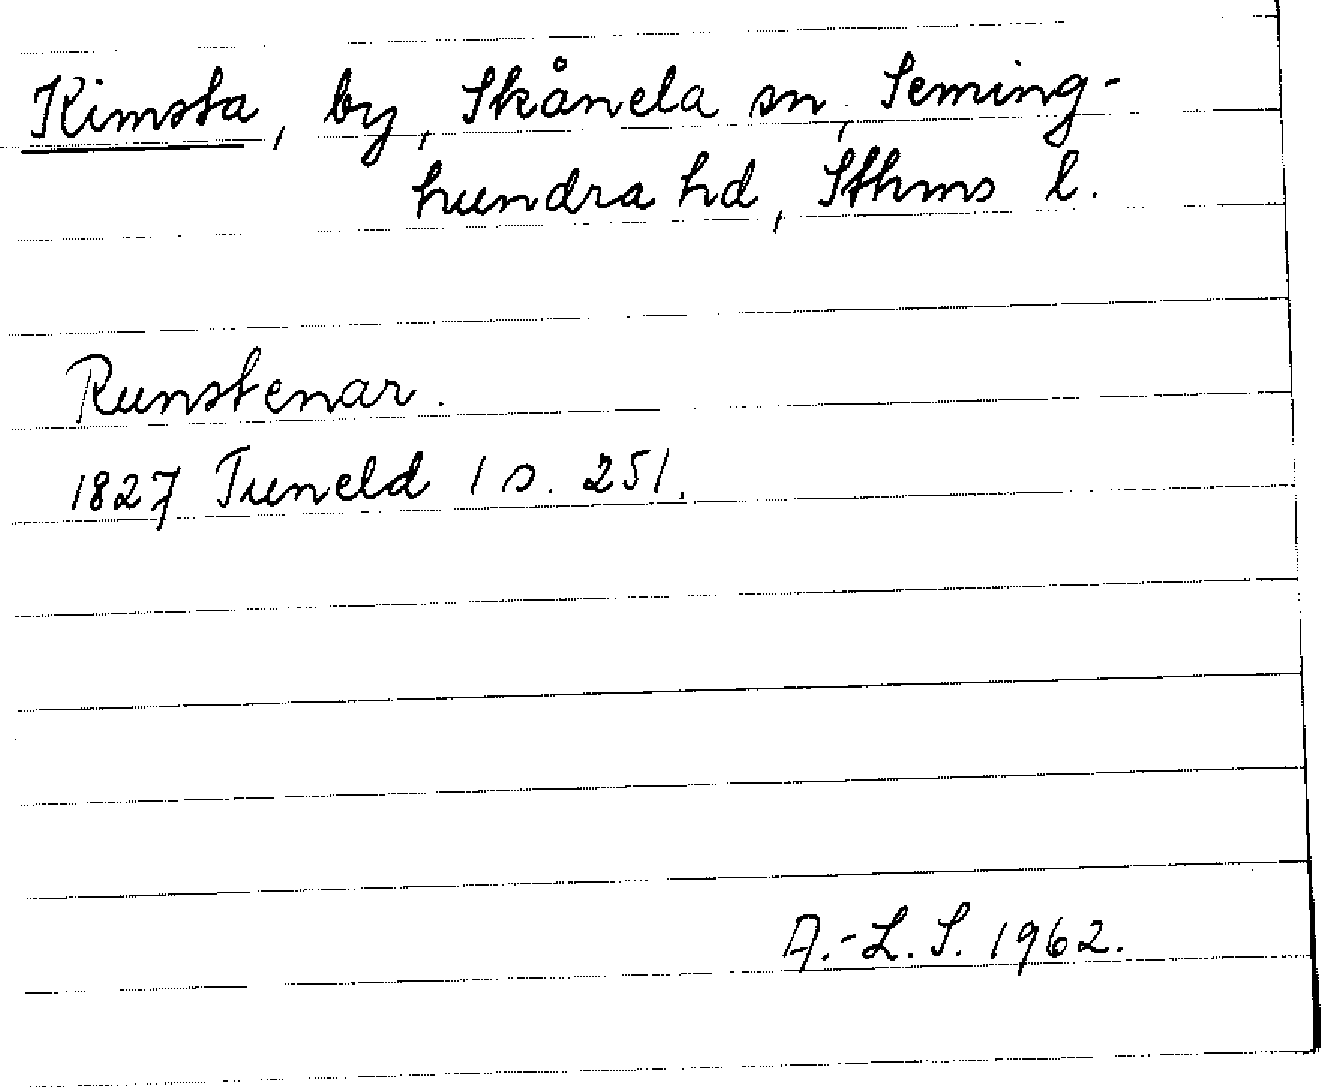 Kimsta, by, Skånela sn, Seming-
hundra hd, Sthms l.
Runstenar.
1827 Tuneld 1 s. 251.
A.-L. S. 1962.